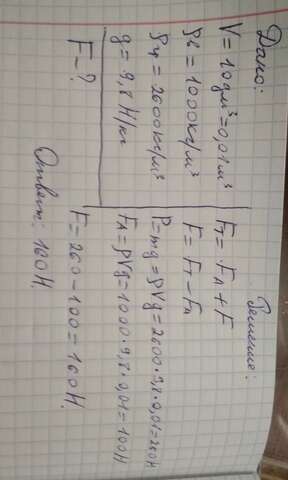 Дано:
V = 10дм³ = 0,01м³
ρв = 1000кг/м³
ρч = 2600кг/м³
g = 9,8 Н/кг
F - ?
Решение:
Fт = Fа + F
F = Fт - Fа
P = mg = ρVg = 2600·9,8·0,01 = 260Н
Fа = ρVg = 1000·9,8·0,01 = 100Н
F = 260 - 100 = 160Н.
Ответ: 160Н.